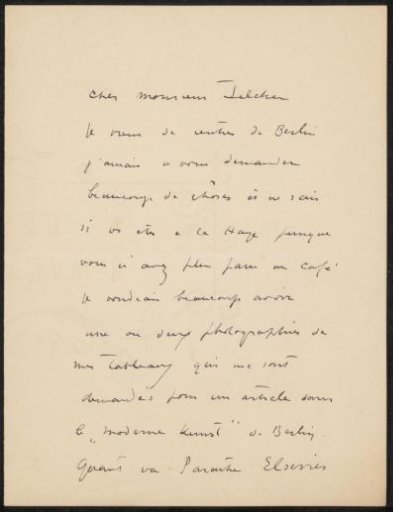 Cher monsieur Zilcken
Je viens de rentrer de Berlin
j'aurais a vous demander
beaucoup de choses et ne sais
si vs etes a la Haye puisque
vous n'avez plus paru au café
je voudrais beaucoup avoir
une ou deux photographies de
mes tableaux qui me sont
demandés pour un article dans
le „Moderne Kunst" de Berlin.
Quand va Paraitre Elsevier